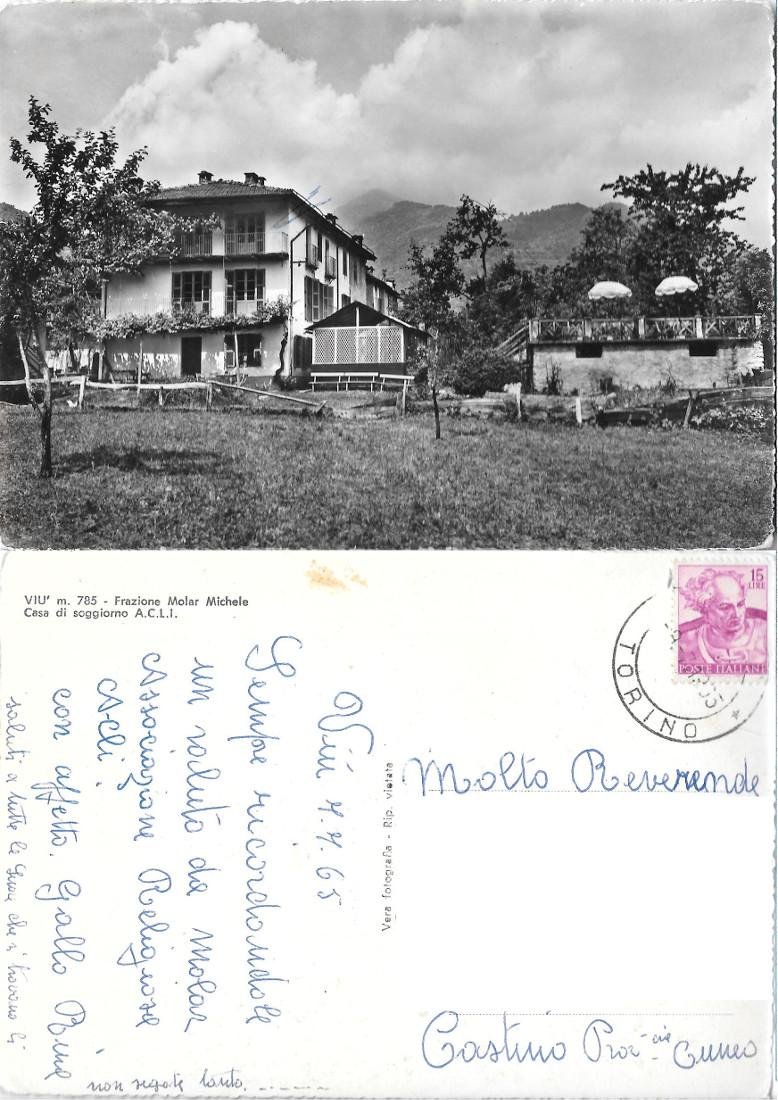 VIU' m. 785 - Frazione Molar Michele
Casa di soggiorno A.C.L.I.
15
LIRE
POSTE ITALIANE
TORINO
Viù
65
Sempre ricordandole
un saluto da Molar
Associazione Religiose
Acli.
con affetto. Gallo Rina
saluti a tutte le Suore che si trovano lì
non segate tanto.
Vera fotografia - Rip. vietata
Molto Reverende
Castino Prov.cia Cuneo